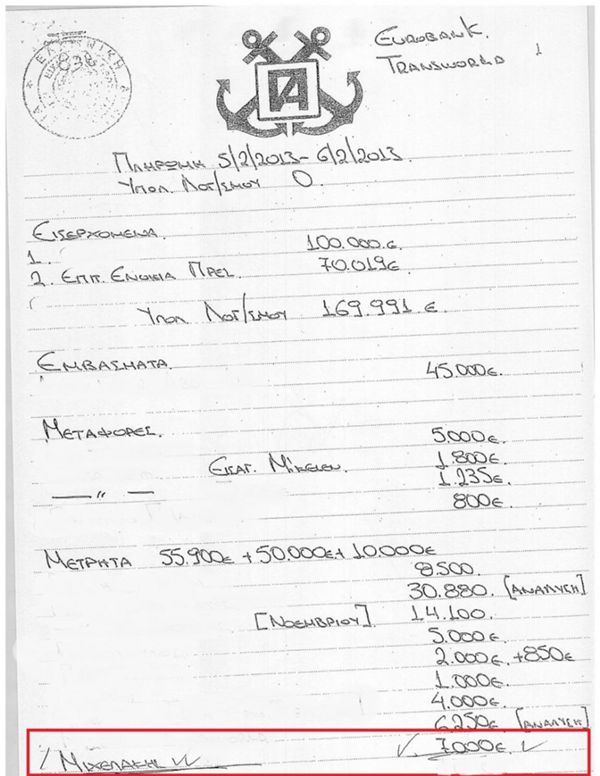 EUROBANK
TRANSWORLD 1
838
ΠΛΗΡΩΜΗ 5/2/2013 - 6/2/2013
ΥΠΟΛ ΛΟΓ/ΣΜΟΥ 0
ΕΙΣΕΡΧΟΜΕΝΑ
1. 100.000€
2. ΕΠΙΤ. ΕΝΟΙΚΙΑ ΠΡΕΣ. 70.019€
ΥΠΟΛ ΛΟΓ/ΣΜΟΥ 169.991 €
ΕΜΒΑΣΜΑΤΑ 45.000€
ΜΕΤΑΦΟΡΕΣ 5.000€
ΕΙΣΑΓ. 1.800€
— " — 1.235€
800€
ΜΕΤΡΗΤΑ 55.900€ + 50.000€ + 10.000€
8.500
30.880 [ΑΝΑΛΥΣΗ]
[ΝΟΕΜΒΡΙΟΥ] 14.100
5.000€
2.000€ +850€
1.000€
4.000€
6.250€ [ΑΝΑΛΥΣΗ]
/ ΜΙΧΕΛΑΚΗ ✓✓ ✓ 7.000€ ✓